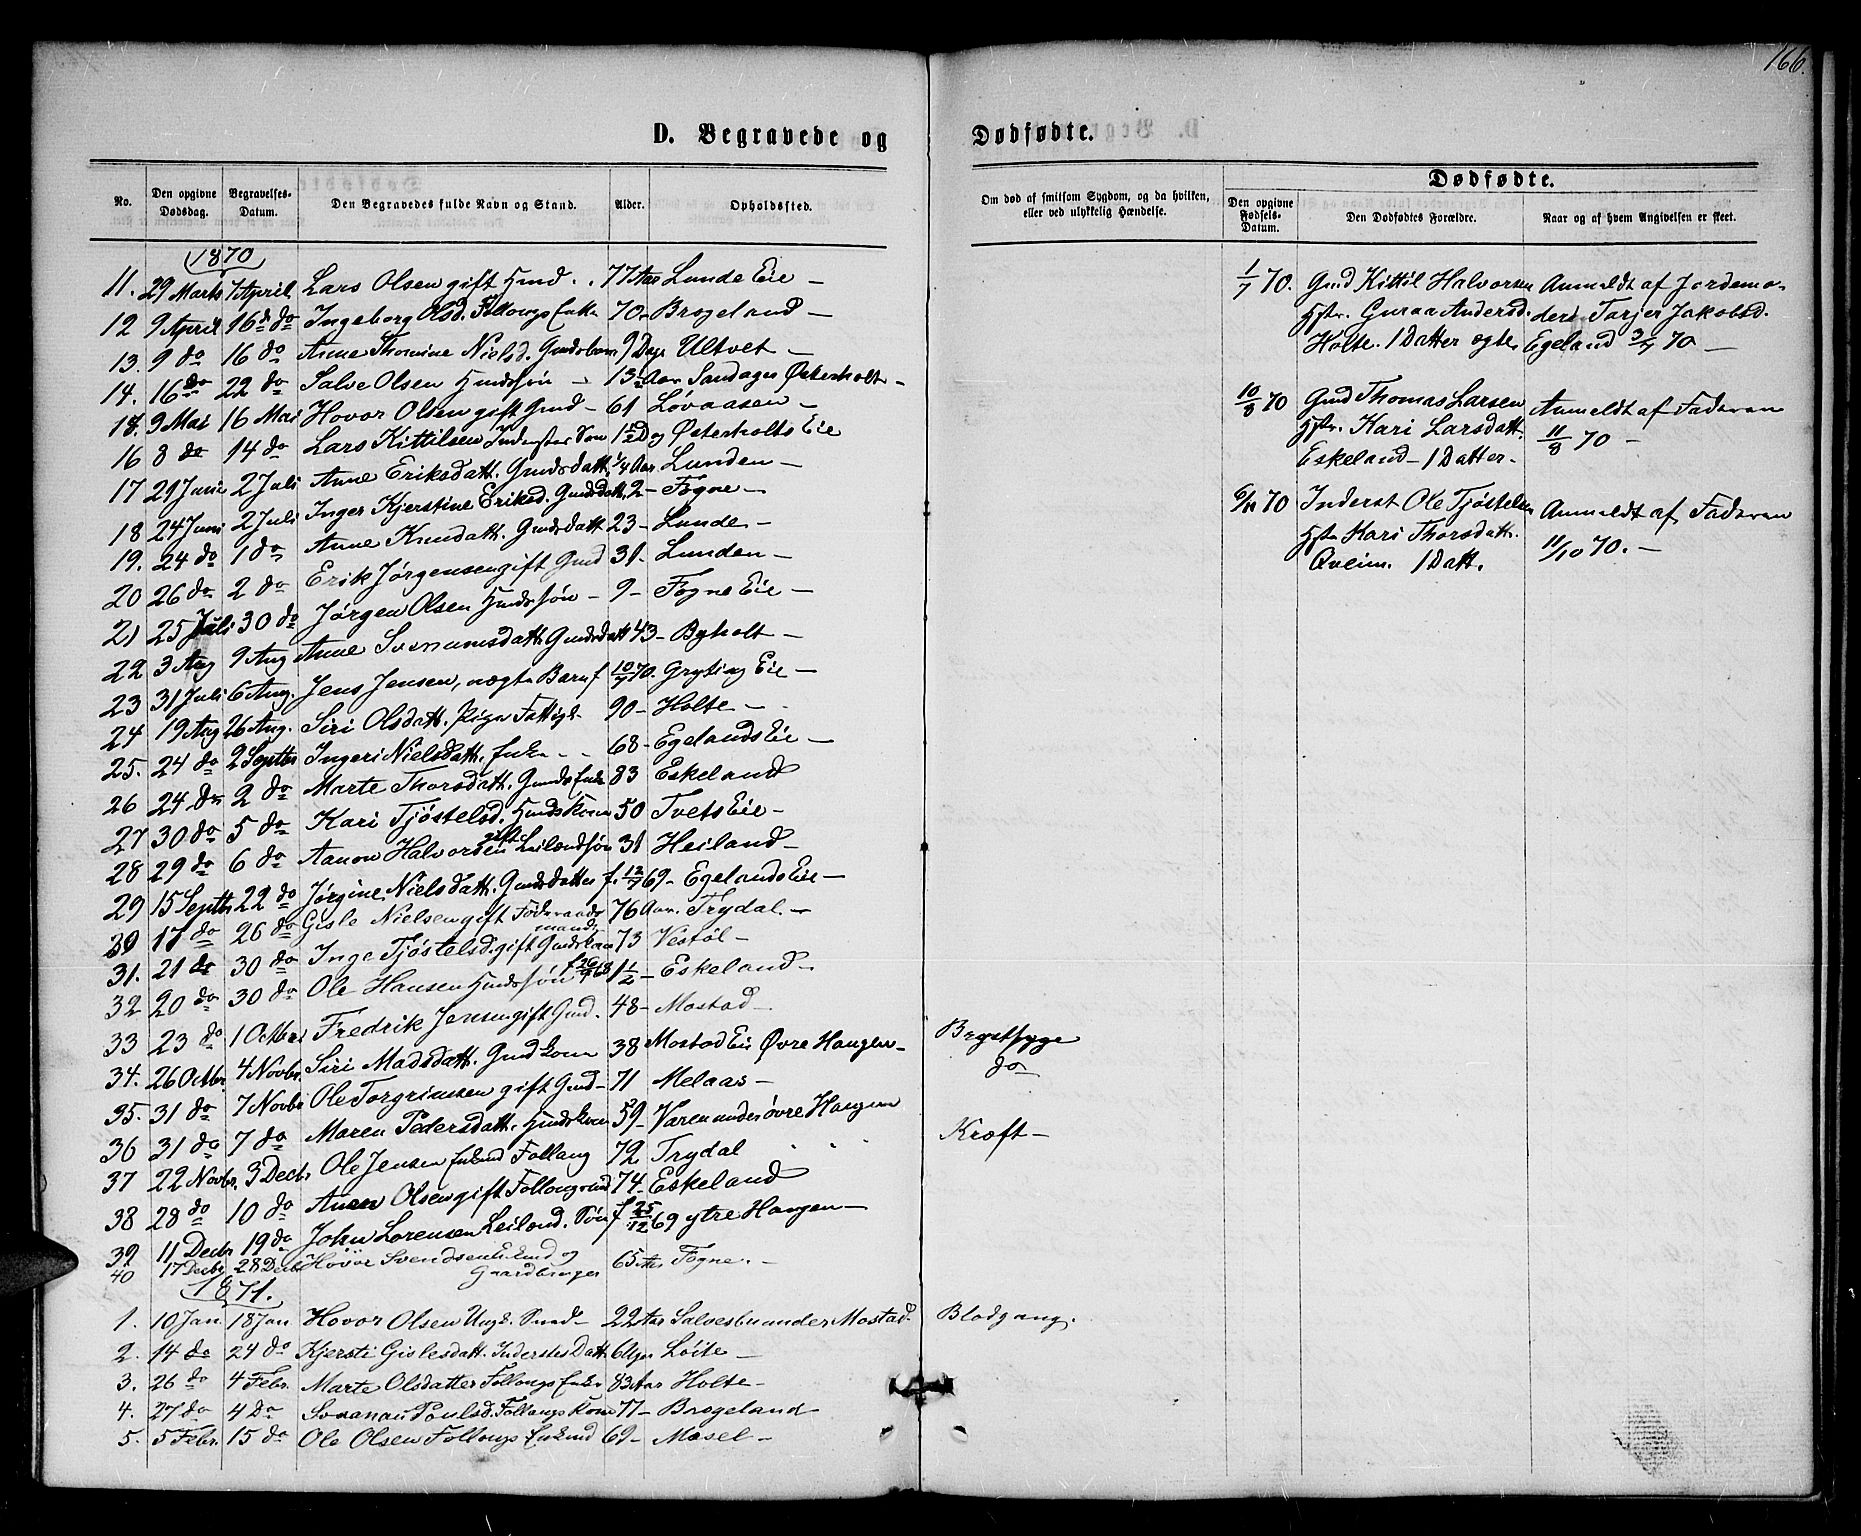 166.
D. Begravede og Dødfødte.
No.
Den opgivne Dødsdag.
Begravelses-Datum.
Den Begravedes fulde Navn og Stand.
Alder.
Opholdssted.
Om død af smitsom Sygdom, og da hvilken, eller ved ulykkelig Hændelse.
Dødfødte.
Den opgivne Fødsels-Datum.
Den Dødfødtes Forældre.
Naar og af hvem Angivelsen er skeet.
1870
11. 29 Marts 7 April Lars Olsen gift Hmd. 77 Aar Lunde Eie -
12 9 April 16 do Ingeborg Olsd. Follougs Enke 70 - Brogeland -
13. 9 do 16 do Anne Thomine Nielsd. Gmdsbarn 9 Dage Ultvet -
14. 16 do 22 do Salve Olsen Hmdssøn - 13 Aar Sandager Østerholt -
18. 9 Mai 16 Mai Hovor Olsen gift Gmd - 61 Løvaasen -
16 8 do 14 do Lars Kittilsen Inderstes Søn 1½ Dg Østerholts Eie
17 29 Juni 2 Juli Anne Eriksdatt. Gmdsdatt. ¼ Aar Lunden -
18 24 Juni 2 Juli Inger Kjerstine Eriksd. Gmdsdatt. 2 - Fogne -
19. 24 do 1 do Anne Knudatt. Gmdsdatt 23 - Lunde -
20 26 do 2 do Erik Jørgensen gift Gmd 31 - Lunden -
21 25 Juli 30 do Jørgen Olsen Hmdssøn - 9 - Fogne Eie -
22 3 Aug 9 Aug Anne Svenumsdatt. Gmdsdatt 43 - Byholt -
23 31 Juli 6 Aug. Jens Jensen, uægte Barn f 10/7 70. Gryting Eie -
24 19 Aug 26 Aug. Siri Olsdatt. Pige Fattigl. 90 - Holte -
25. 24 do 2 Septbr Ingeri Nielsdatt. Enke - - 68 - Egelands Eie -
26 24 do 2 do Marte Thorsdatt. Gmds Enke 83 Eskeland
27 30 do 5 do Kari Tjøstelsd. Hmdskone 50 Tvets Eie -
28 29 do 6 do Aanon Halvorsen gift Leilændssøn 31 Heiland -
29 15 Septbr 22 do Jørgine Nielsdatt. Gmdsdatter f. 12/7 69 - Egelands Eie -
30 17 do 26 do Gisle Nielsen gift Føderaadsmand 76 Aar. Trydal. -
31. 21 do 30 do Inge Tjøstelsd. gift Gmdskone 73 Vestøl -
32 20 do 30 do Ole Hansen Hmdssøn f 26/9 68 1½ - Eskeland -
33 23 do 1 Octbr Fredrik Jensen gift Gmd. 48 - Mostad - Brystsyge
34. 26 Octbr. 4 Novbr. Siri Madsdatt. Gmdkone 38 Mostad Eie Øvre Haugen - do
35. 31 do 7 Novbr Ole Torgrimsen gift Gmd - 71 Melaas -
36 31 do 7 do Maren Pedersdatt. Hmdskone 59 - Varen under øvre Haugen Kræft -
37 22 Novbr. 3 Decbr Ole Jensen Enkmd Follaug 72 Trydal
38 28 do 10 do Aanen Olsen gift Follougmd 74 - Eskeland
39 11 Decbr 19 do John Lorensen Leilænd. Søn f 25/12 69 ytre Haugen -
40 17 Decbr 28 Decbr Høvor Svendsen Enkmd og Gaardbruger 65 Aar Fogne. -
1871.
1. 10 Jan 18 Jan Hovor Olsen Ungk. Smed - 22 Aar Salvesbu under Mostad - Blodgang.
2. 14 do 24 do Kjersti Gislesdatt. Inderstes Datt. 6 Uger Løite -
3. 26 do 4 Febr. Marte Olsdatter Follougs Enke 83 Aar Holte -
4. 27 do 4 Do Svanau Poulsd. Follougs Kone 77 - Brogeland
5. 5 Febr. 15 do Ole Olsen Follougs Enkmd 69 - Mæsel -
1/7 70. Gmd Kittil Halvorsen Anmeldt af Jordemo-
Hstr. Guraa Andersd. deren Tarjer Jakobsd.
Holte. 1 Datter ægte Egeland 3/7 70 -
10/8 70 Gmd Thomas Larsen Anmeldt af Faderen
Hstr. Kari Larsdatt. 11/8 70 -
Eskeland - 1 Datter -
6/10 70 Inderst Ole Tjøstelsen Anmeldt af Faderen
Hstr Kari Thorsdatt. 11/10 70. -
Qveim. 1 Datt.